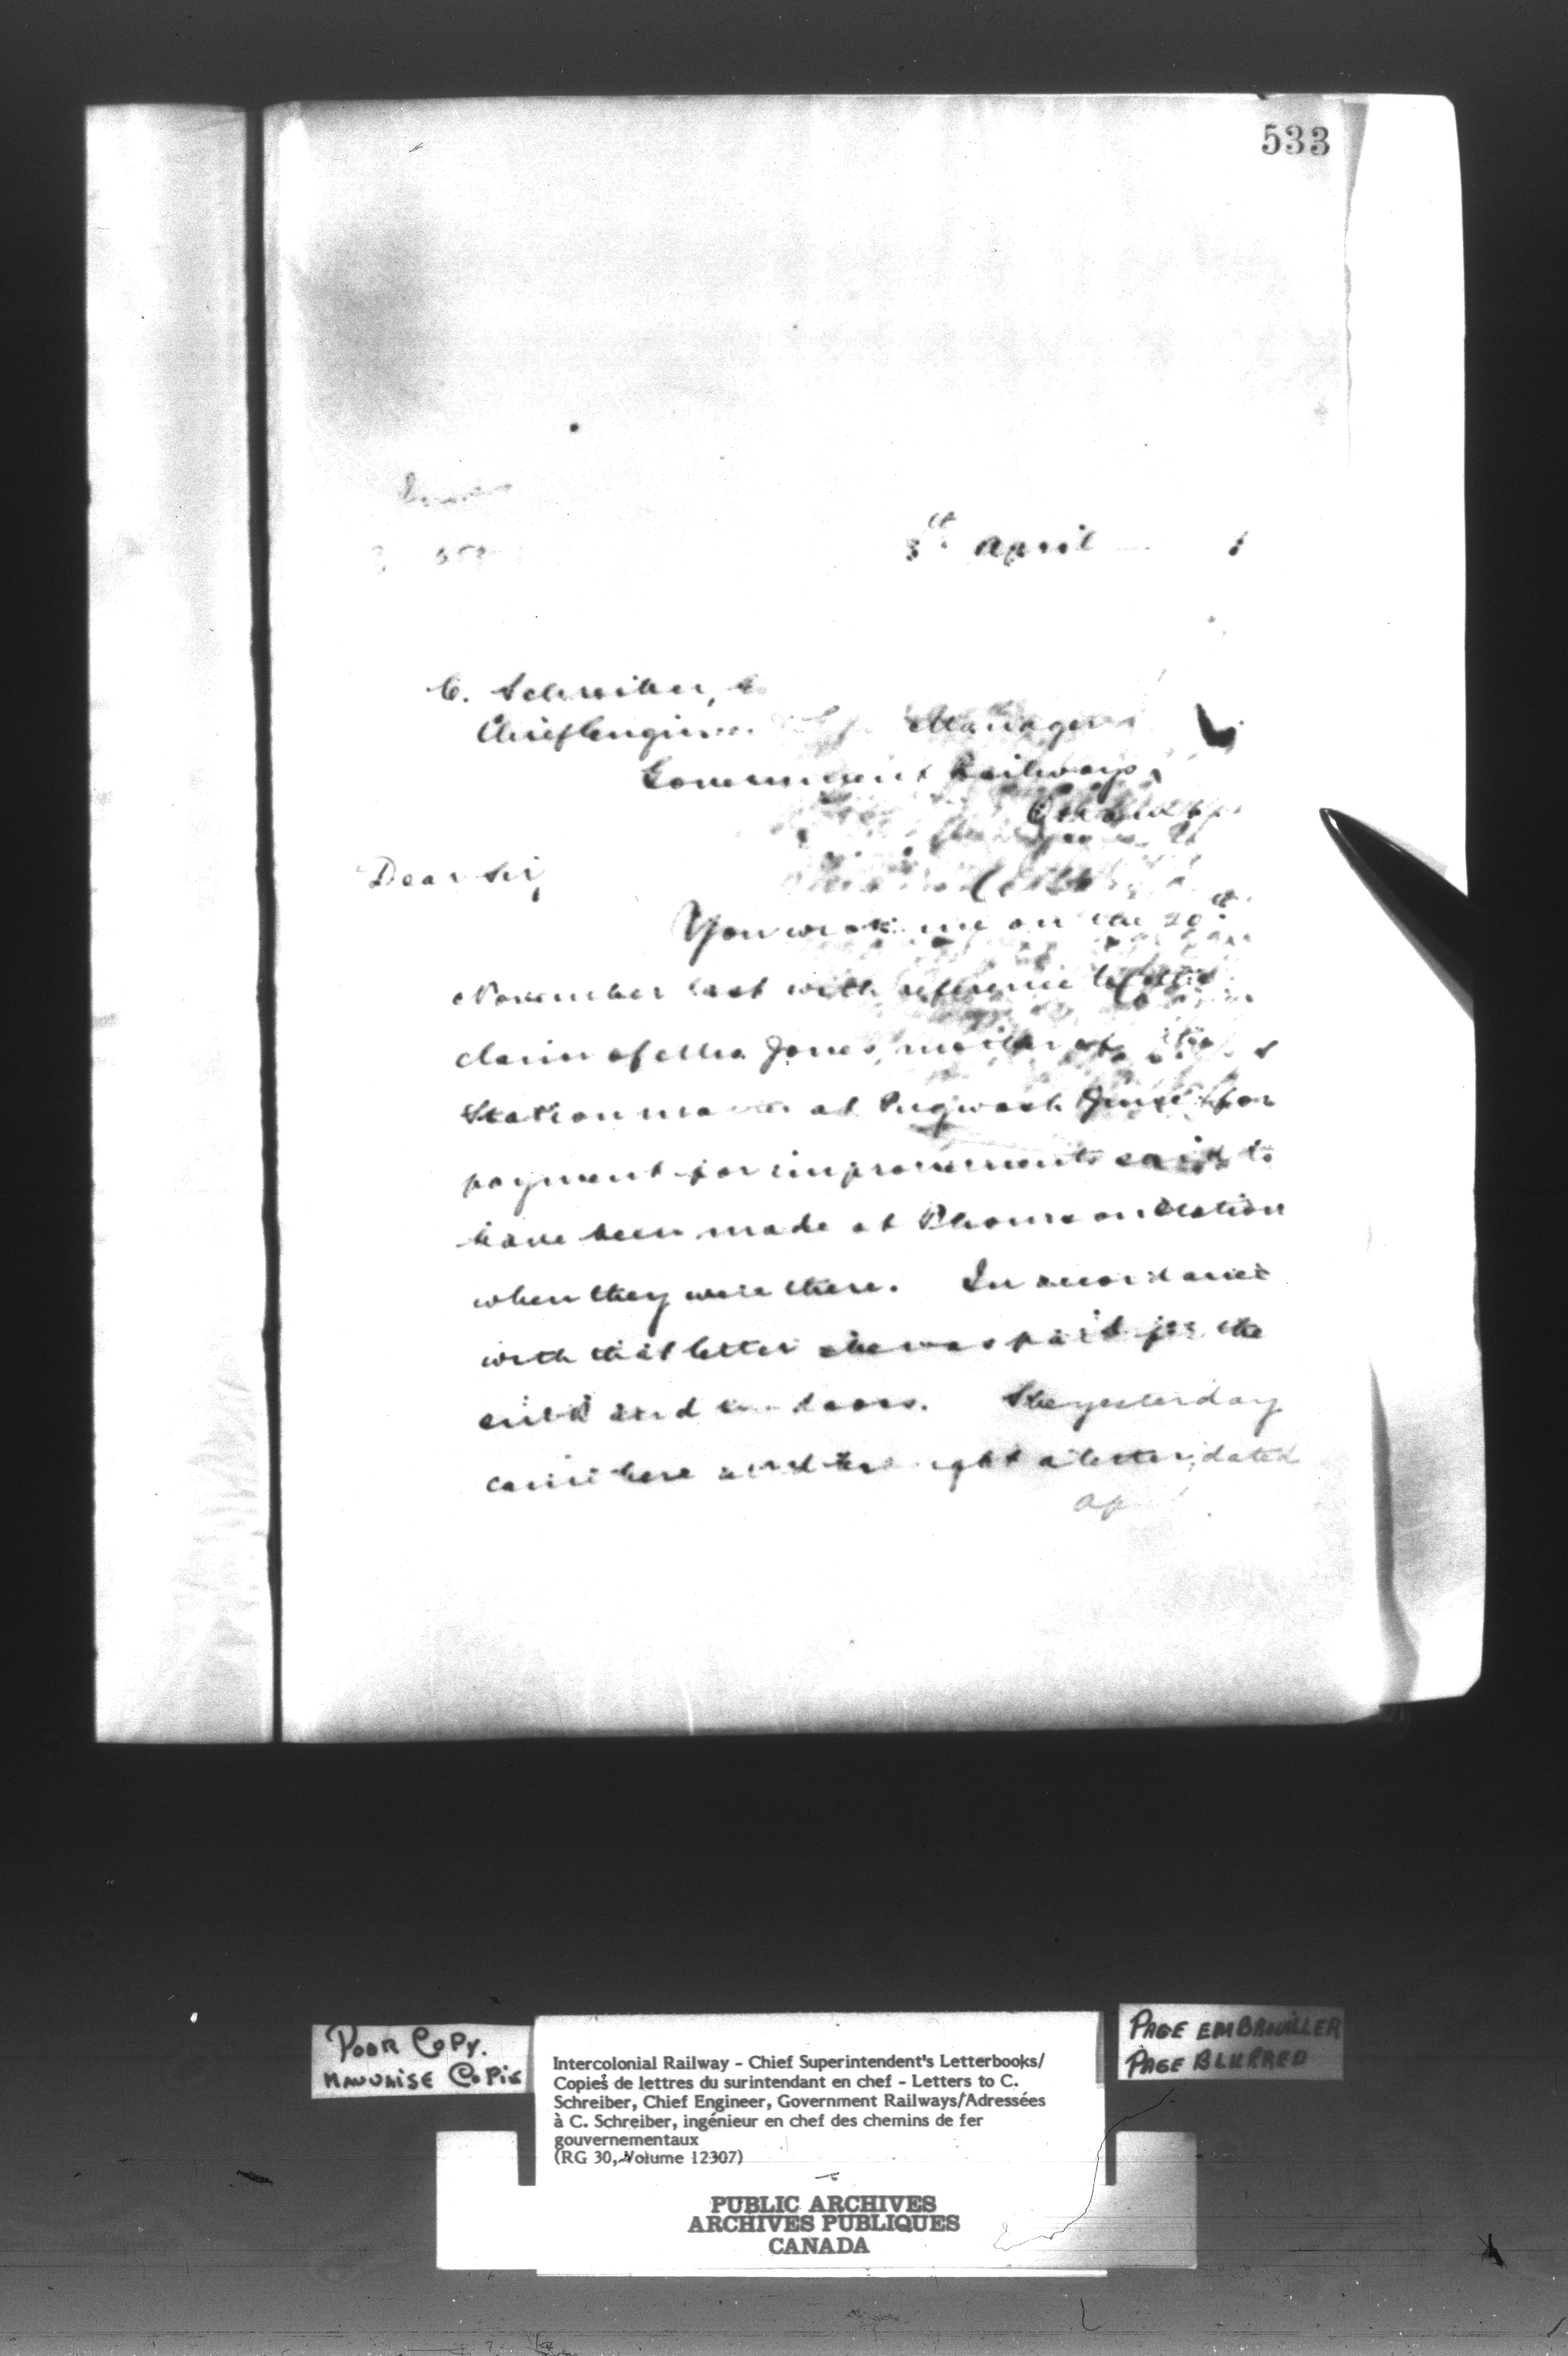 533
8th April
C. Schreiber,
Chief Engineer Manager
Government Railways,
Ottawa
Dear Sir,
You wrote me on the 20th
November last with reference to the
claim of Mrs. Jones, mother of the
Station master at Pugwash Junct. for
payment for improvements said to
have been made at Station
when they were there. In accordance
with that letter she was paid for the
and doors. She yesterday
came here and brought a letter, dated
POOR COPY.
MAUVAISE COPIE
Intercolonial Railway - Chief Superintendent's Letterbooks/
Copies de lettres du surintendant en chef - Letters to C.
Schreiber, Chief Engineer, Government Railways/Adressées
à C. Schreiber, ingénieur en chef des chemins de fer
gouvernementaux
(RG 30, Volume 12307)
PUBLIC ARCHIVES
ARCHIVES PUBLIQUES
CANADA
PAGE EMBROUILLER
PAGE BLURRED